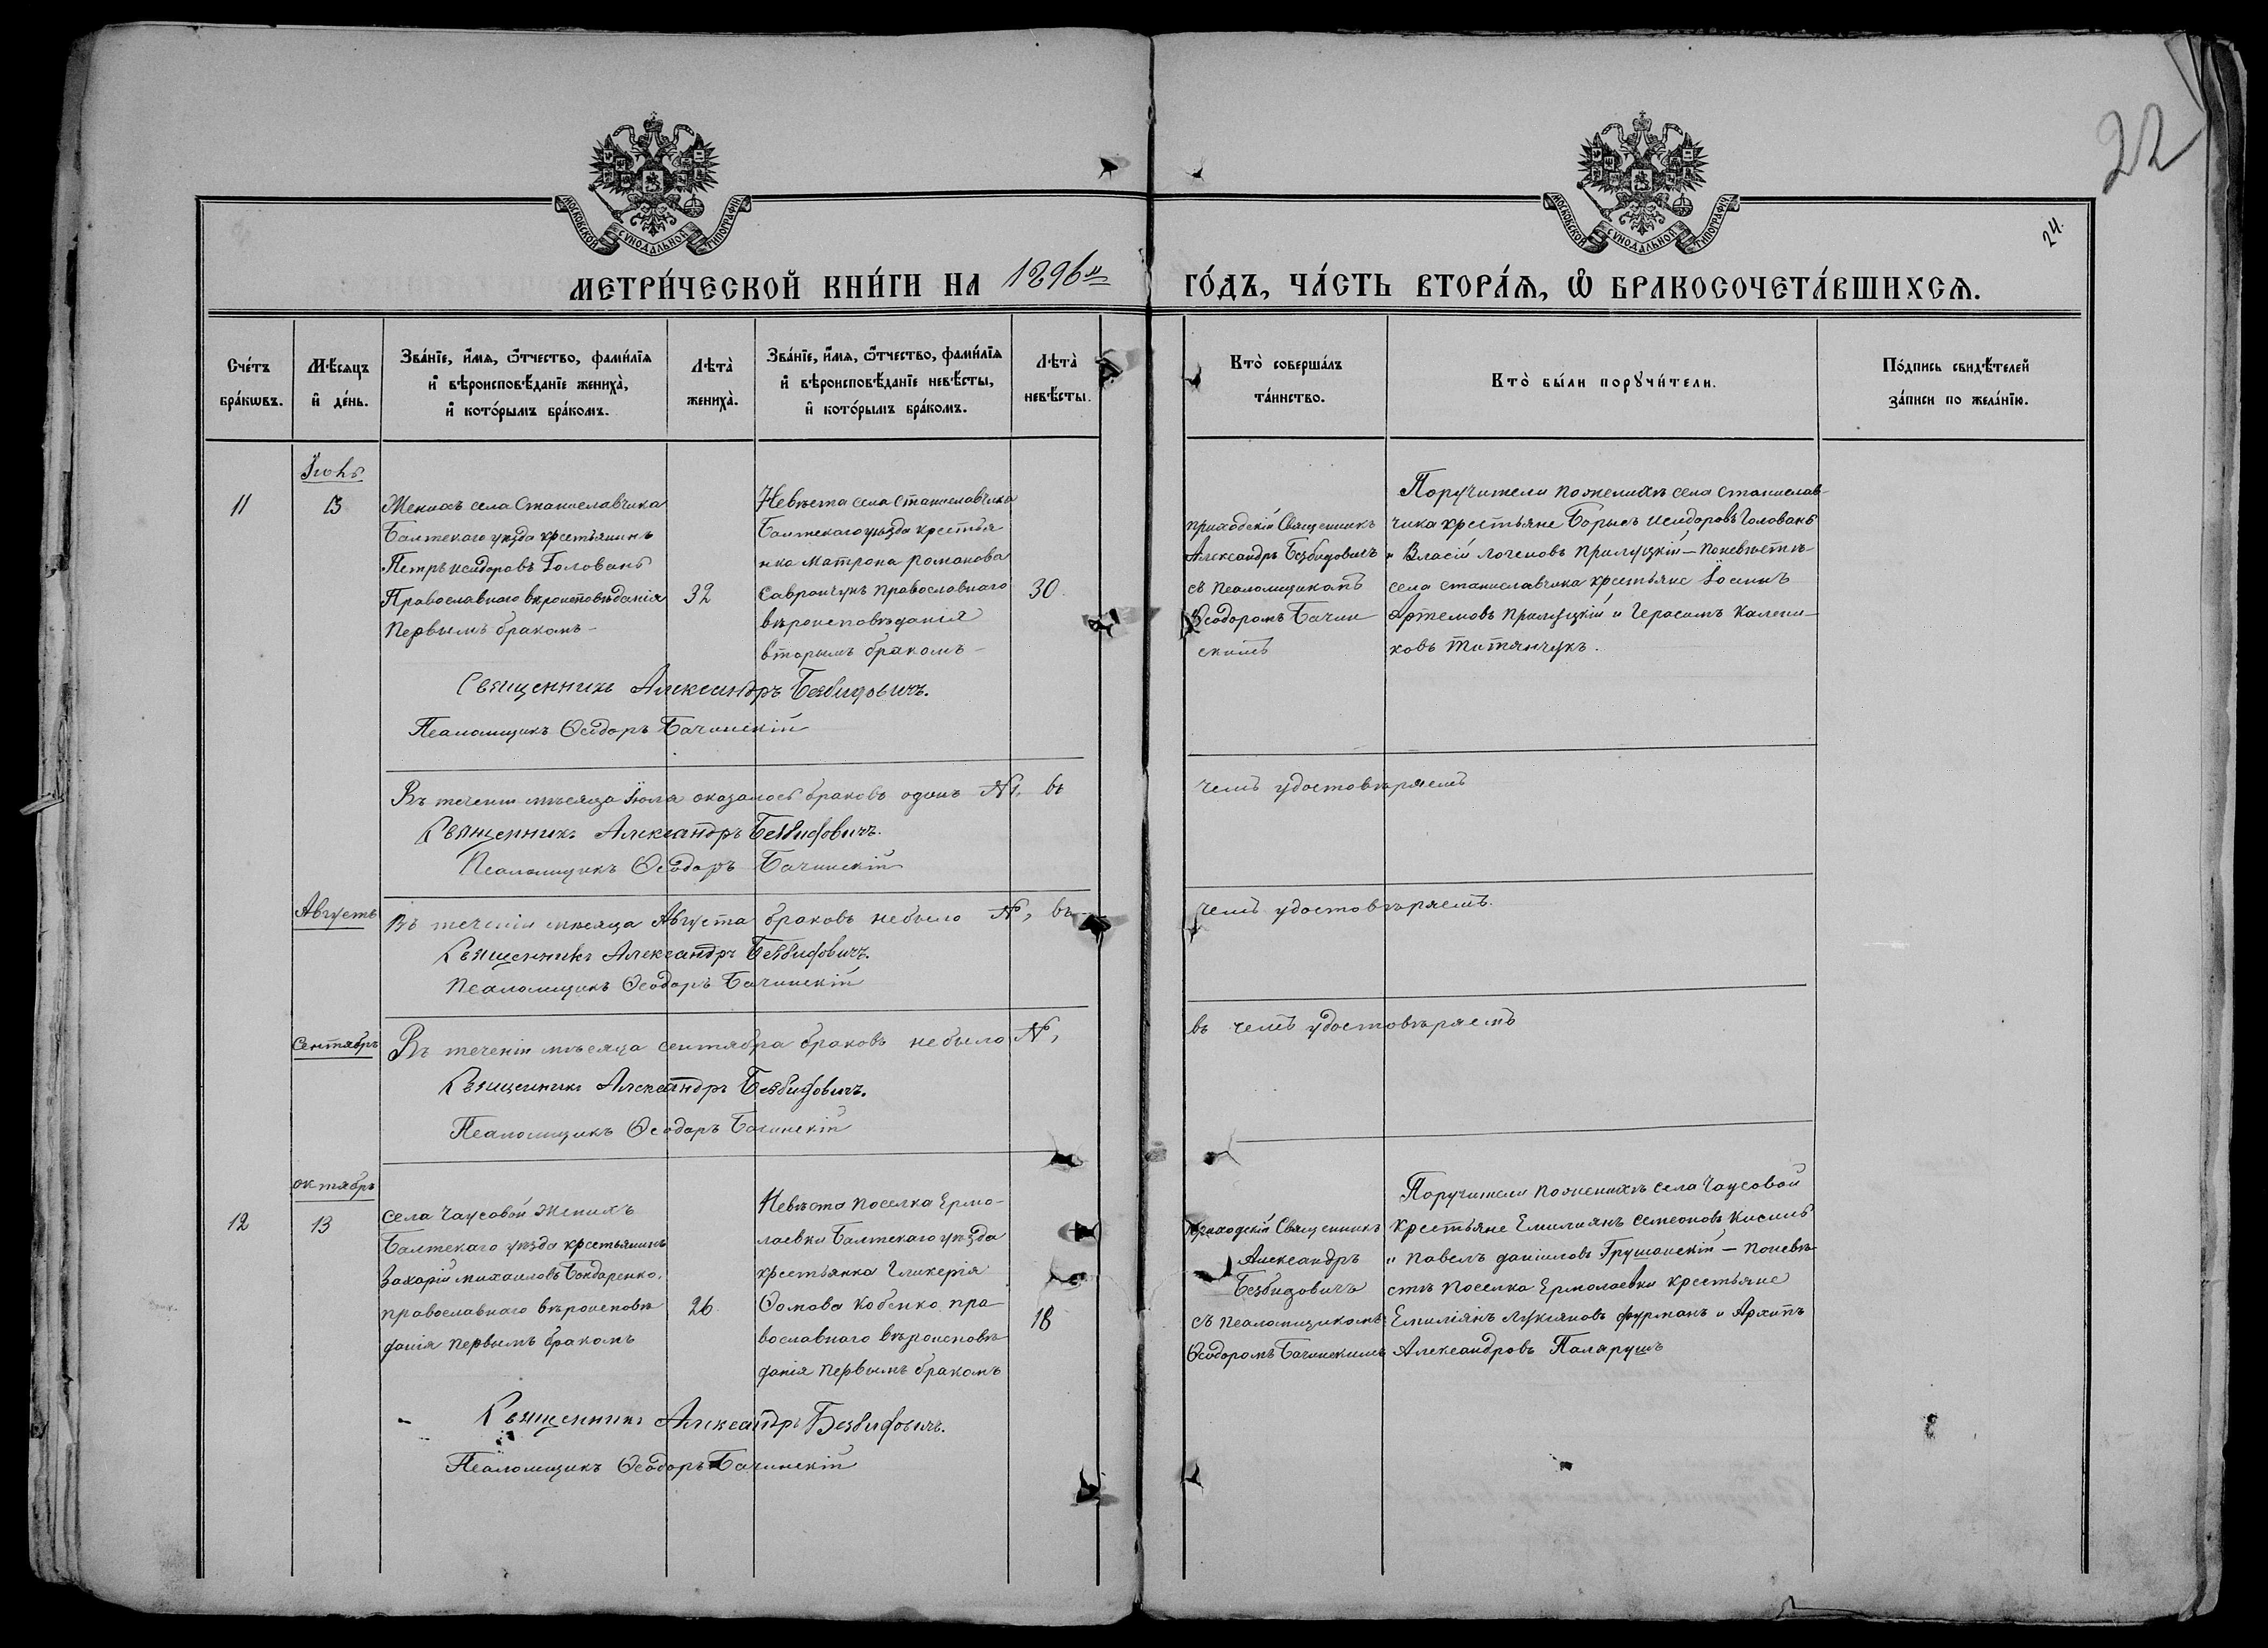 22
24.
МОСКОВСКОЙ СѴНОДАЛЬНОЙ ТИПОГРАФІИ
МОСКОВСКОЙ СѴНОДАЛЬНОЙ ТИПОГРАФІИ
МЕТРИ́ЧЕСКОЙ КНИ́ГИ НА 1896й ГО́ДЪ, ЧА́СТЬ ВТОРА́Ѧ, Ѽ БРАКОСОЧЕТА́ВШИХСѦ.
Сче́тъ
бра́кѡвъ.
Мѣ́сѧцъ
и де́нь.
Зва́нїе, и́мѧ, ѻ́тчество, фами́лїѧ
и вѣроисповѣ́данїе жениха̀,
и кото́рымъ бра́комъ.
Лѣта̀
жениха̀.
Зва́нїе, и́мѧ, ѻ́тчество, фами́лїѧ
и вѣроисповѣ́данїе невѣ́сты,
и кото́рымъ бра́комъ.
Лѣта̀
невѣ́сты.
Кто̀ соверша́лъ
та́инство.
Кто̀ бы́ли порꙋчи́тели.
По́дпись свидѣ́телей
за́писи по жела́нїю.
11
13
Женихъ села Станиславчика
Балтскаго уѣзда крестьянинъ
Петръ исидоровъ Голованъ
Православнаго вѣроисповѣданія
первымъ бракомъ
32
Невѣста села Станиславчика
Балтскаго уѣзда крестья
нка Матрона романова
Саврончукъ православнаго
вѣроисповѣданія
вторымъ бракомъ
30
приходскій Священникъ
Александръ Безбидовичъ
съ псаломщикомъ
Ѳеодоромъ Бачин
скимъ
Поручители по женихѣ села станислав-
чика крестьяне Борысъ исидоровъ Голованъ
и Власій Прилуцкій — по невѣстѣ
села станиславчика крестьяне Іосипъ
Артемовъ Прилуцкій и Герасимъ Калени-
ковъ Титянчукъ.
Священникъ Александръ Безбидовичъ.
Псаломщикъ Ѳеодоръ Бачинскій
Въ теченіи мѣсяца Іюля оказалось браковъ одинъ №1, въ чемъ удостовѣряемъ
Священникъ Александръ Безбидовичъ.
Псаломщикъ Ѳеодоръ Бачинскій
Августъ
Въ теченіи мѣсяца Августа браковъ небыло №, въ чемъ удостовѣряемъ.
Священникъ Александръ Безбидовичъ.
Псаломщикъ Ѳеодоръ Бачинскій
Сентябрь
Въ теченіи мѣсяца сентября браковъ небыло №, въ чемъ удостовѣряемъ
Священникъ Александръ Безбидовичъ.
Псаломщикъ Ѳеодоръ Бачинскій
октябрь
12
13
села Чаусовой Женихъ
Балтскаго уѣзда крестьянинъ
Захарій михаиловъ Бондаренко,
православнаго вѣроисповѣ
данія первымъ бракомъ
26
Невѣста поселка Ермо-
лаевки Балтскаго уѣзда
крестьянка Гликерія
Ѳомова Кобенко, пра-
вославнаго вѣроисповѣ
данія первымъ бракомъ
18
Приходскій Священникъ
Александръ
Безбидовичъ
съ псаломщикомъ
Ѳеодоромъ Бачинскимъ
Поручители по женихѣ села Чаусовой
крестьяне Емилиянъ семеоновъ Кисиль
и Павелъ даніиловъ Грушанскій — по невѣ-
стѣ поселка Ермолаевки крестьяне
Емиліянъ Лукіяновъ фурманъ и Архипъ
Александровъ Паларушъ
Священникъ Александръ Безбидовичъ.
Псаломщикъ Ѳеодоръ Бачинскій